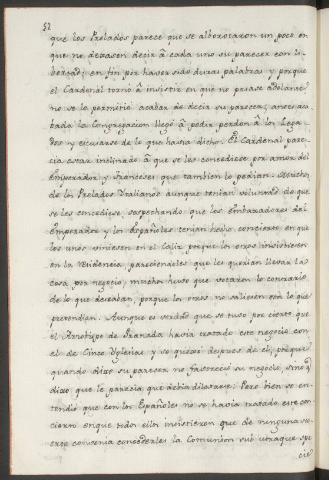 52
que los Prelados parece que se alborotaron un poco en
que no dexasen decir â cada uno su parecer con li-
bertad; en fin por haver sido duras palabras y porque
el Cardenal tornò â insistir en que no pasase adelante
no se le permitiò acabar de decir su parecer, antes aca-
bada la Congregacion llegò â pedir perdon â los Lega-
dos y escusarse de lo que havia dicho. El Cardenal pare-
cia estar inclinado â que se les concediese por amor del
Emperador y Franceses que tambien lo pedian. Muchos
de los Prelados Italianos aunque tenian voluntad de que
se les concediese, sospechando que los Embaxadores del
Emperador y los Españoles tenian hecho concierto en que
los unos viniesen en el Caliz porque los otros insistiesen
en la Residencia, pareciendoles que se querian llevar la
cosa por negocio, muchos huvo que votaron lo contrario
de lo que deseaban, porque los otros no saliesen con lo que
pretendian. Aunque es verdad que se tuvo por cierto que
el Arzobispo de Granada havia tratado este negocio con
el de Cinco Yglesias y se quexò despues de el, porque
quando dixo su parecer no favoreciò su negocio, sino q̃
dixo que le parecia que debia dilatarse: Pero bien se en-
tendiò que con los Españoles no se havia tratado este con-
cierto enque todos ellos insistieron que de ninguna su-
erte convenia concederles la Comunion sub utraque spe
cie